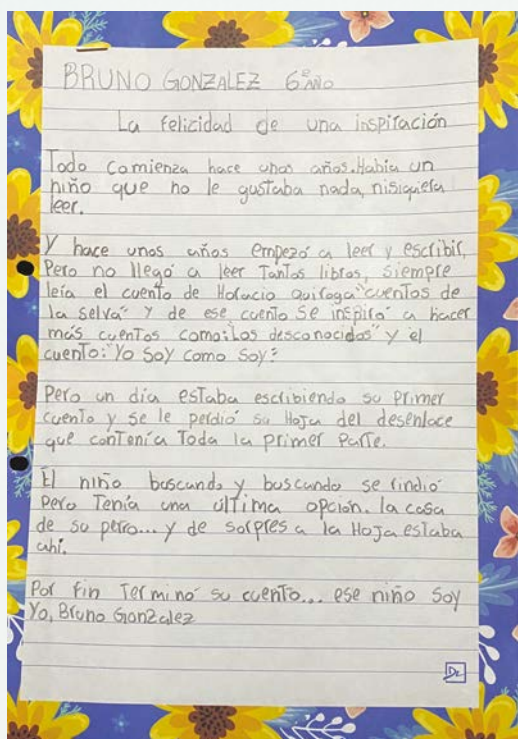 BRUNO GONZALEZ 6º AÑO
La felicidad de una inspiración
Todo comienza hace unos años. Había un
niño que no le gustaba nada, nisiquiera
leer.
Y hace unos años empezó a leer y escribir,
Pero no llegó a leer Tantos libros, siempre
leía el cuento de Horacio quiroga "cuentos de
la selva" y de ese cuento se inspiró a hacer
más cuentos como: "Los desconocidos" y el
cuento: "Yo soy como soy".
Pero un día estaba escribiendo su primer
cuento y se le perdió su Hoja del desenlace
que contenía Toda la primer Parte.
El niño buscando y buscando se rindió
Pero Tenía una última opción. la casa
de su perro... y de sorpres a la Hoja estaba
ahí.
Por fin Terminó su cuento... ese niño soy
Yo, Bruno Gonzalez